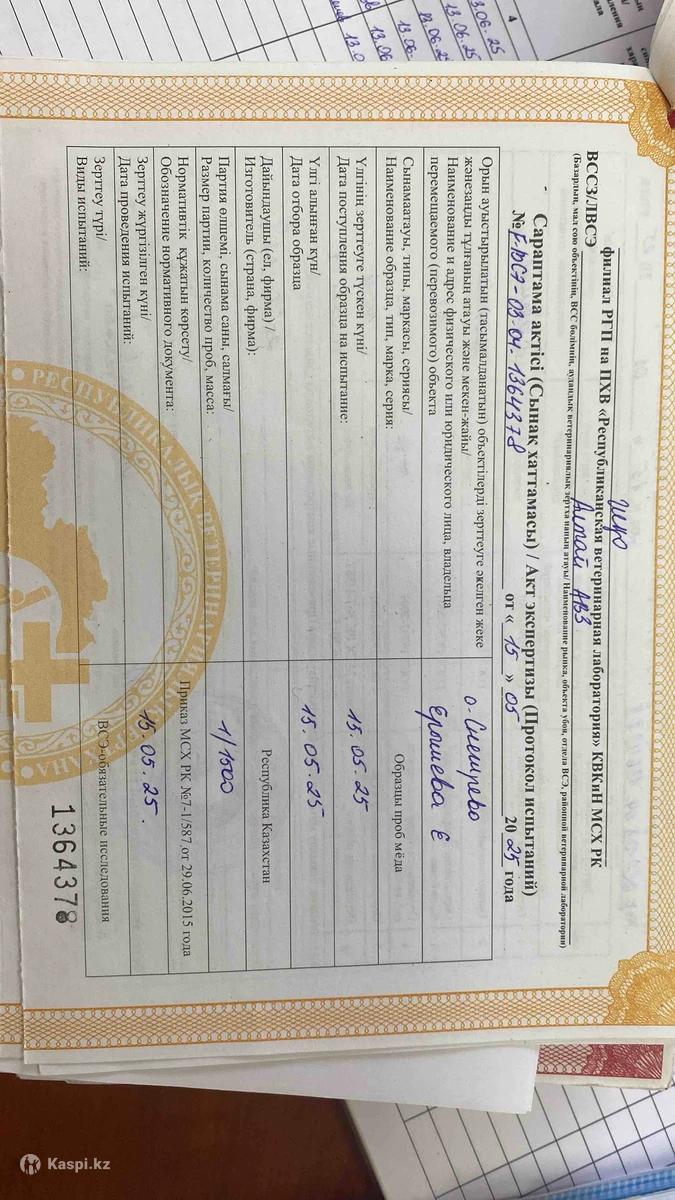 филиал РГП на ПХВ «Республиканская ветеринарная лаборатория» КВКиН МСХ РК
ВССЗ/ЛВСЭ Алтай АВЗ
(Базардың, мал сою объектінің, ВСС бөлімнің, аудандық ветеринариялық зертхананың атауы/ Наименование рынка, объекта убоя, отдела ВСЭ, районной ветеринарной лаборатории)
Сараптама актісі (Сынақ хаттамасы) / Акт экспертизы (Протокол испытаний)
№ 03-04-1364378 от « 15 » 05 2025 года
Орын ауыстырылатын (тасымалданатын) объектілерді зерттеуге әкелген жеке
жәнезаңды тұлғаның атауы және мекен-жайы/
Наименование и адрес физического или юридического лица, владельца
перемещаемого (перевозимого) объекта
Ерошева Е
Сынамаатауы, типы, маркасы, сериясы/
Наименование образца, тип, марка, серия:
Образцы проб мёда
Үлгінің зерттеуге түскен күні/
Дата поступления образца на испытание:
15.05.25
Үлгі алынған күн/
Дата отбора образца
15.05.25
Дайындаушы (ел, фирма) /
Изготовитель (страна, фирма):
Республика Казахстан
Партия өлшемі, сынама саны, салмағы/
Размер партии, количество проб, масса:
1/1500
Нормативтік құжатын көрсету/
Обозначение нормативного документа:
Приказ МСХ РК №7-1/587 от 29.06.2015 года
Зерттеу жүргізілген күні/
Дата проведения испытаний:
15.05.25.
Зерттеу түрі/
Виды испытаний:
ВСЭ-обязательные исследования
1364378
РЕСПУБЛИКАЛЫҚ ВЕТЕРИНАРИЯ
4
13.06.25
13.06.25
13.06.
Kaspi.kz